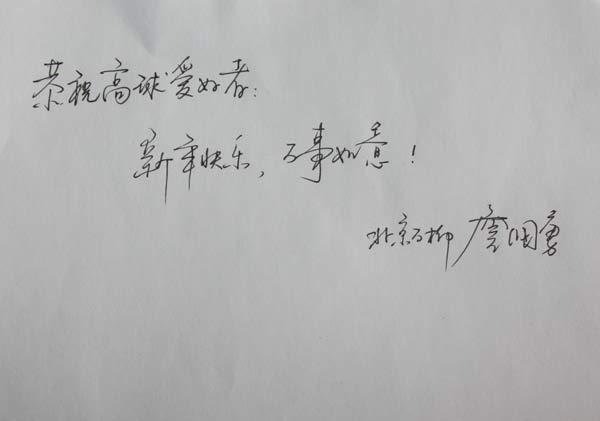 恭祝高球爱好者:
新年快乐,万事如意!
北京万柳 詹国勇